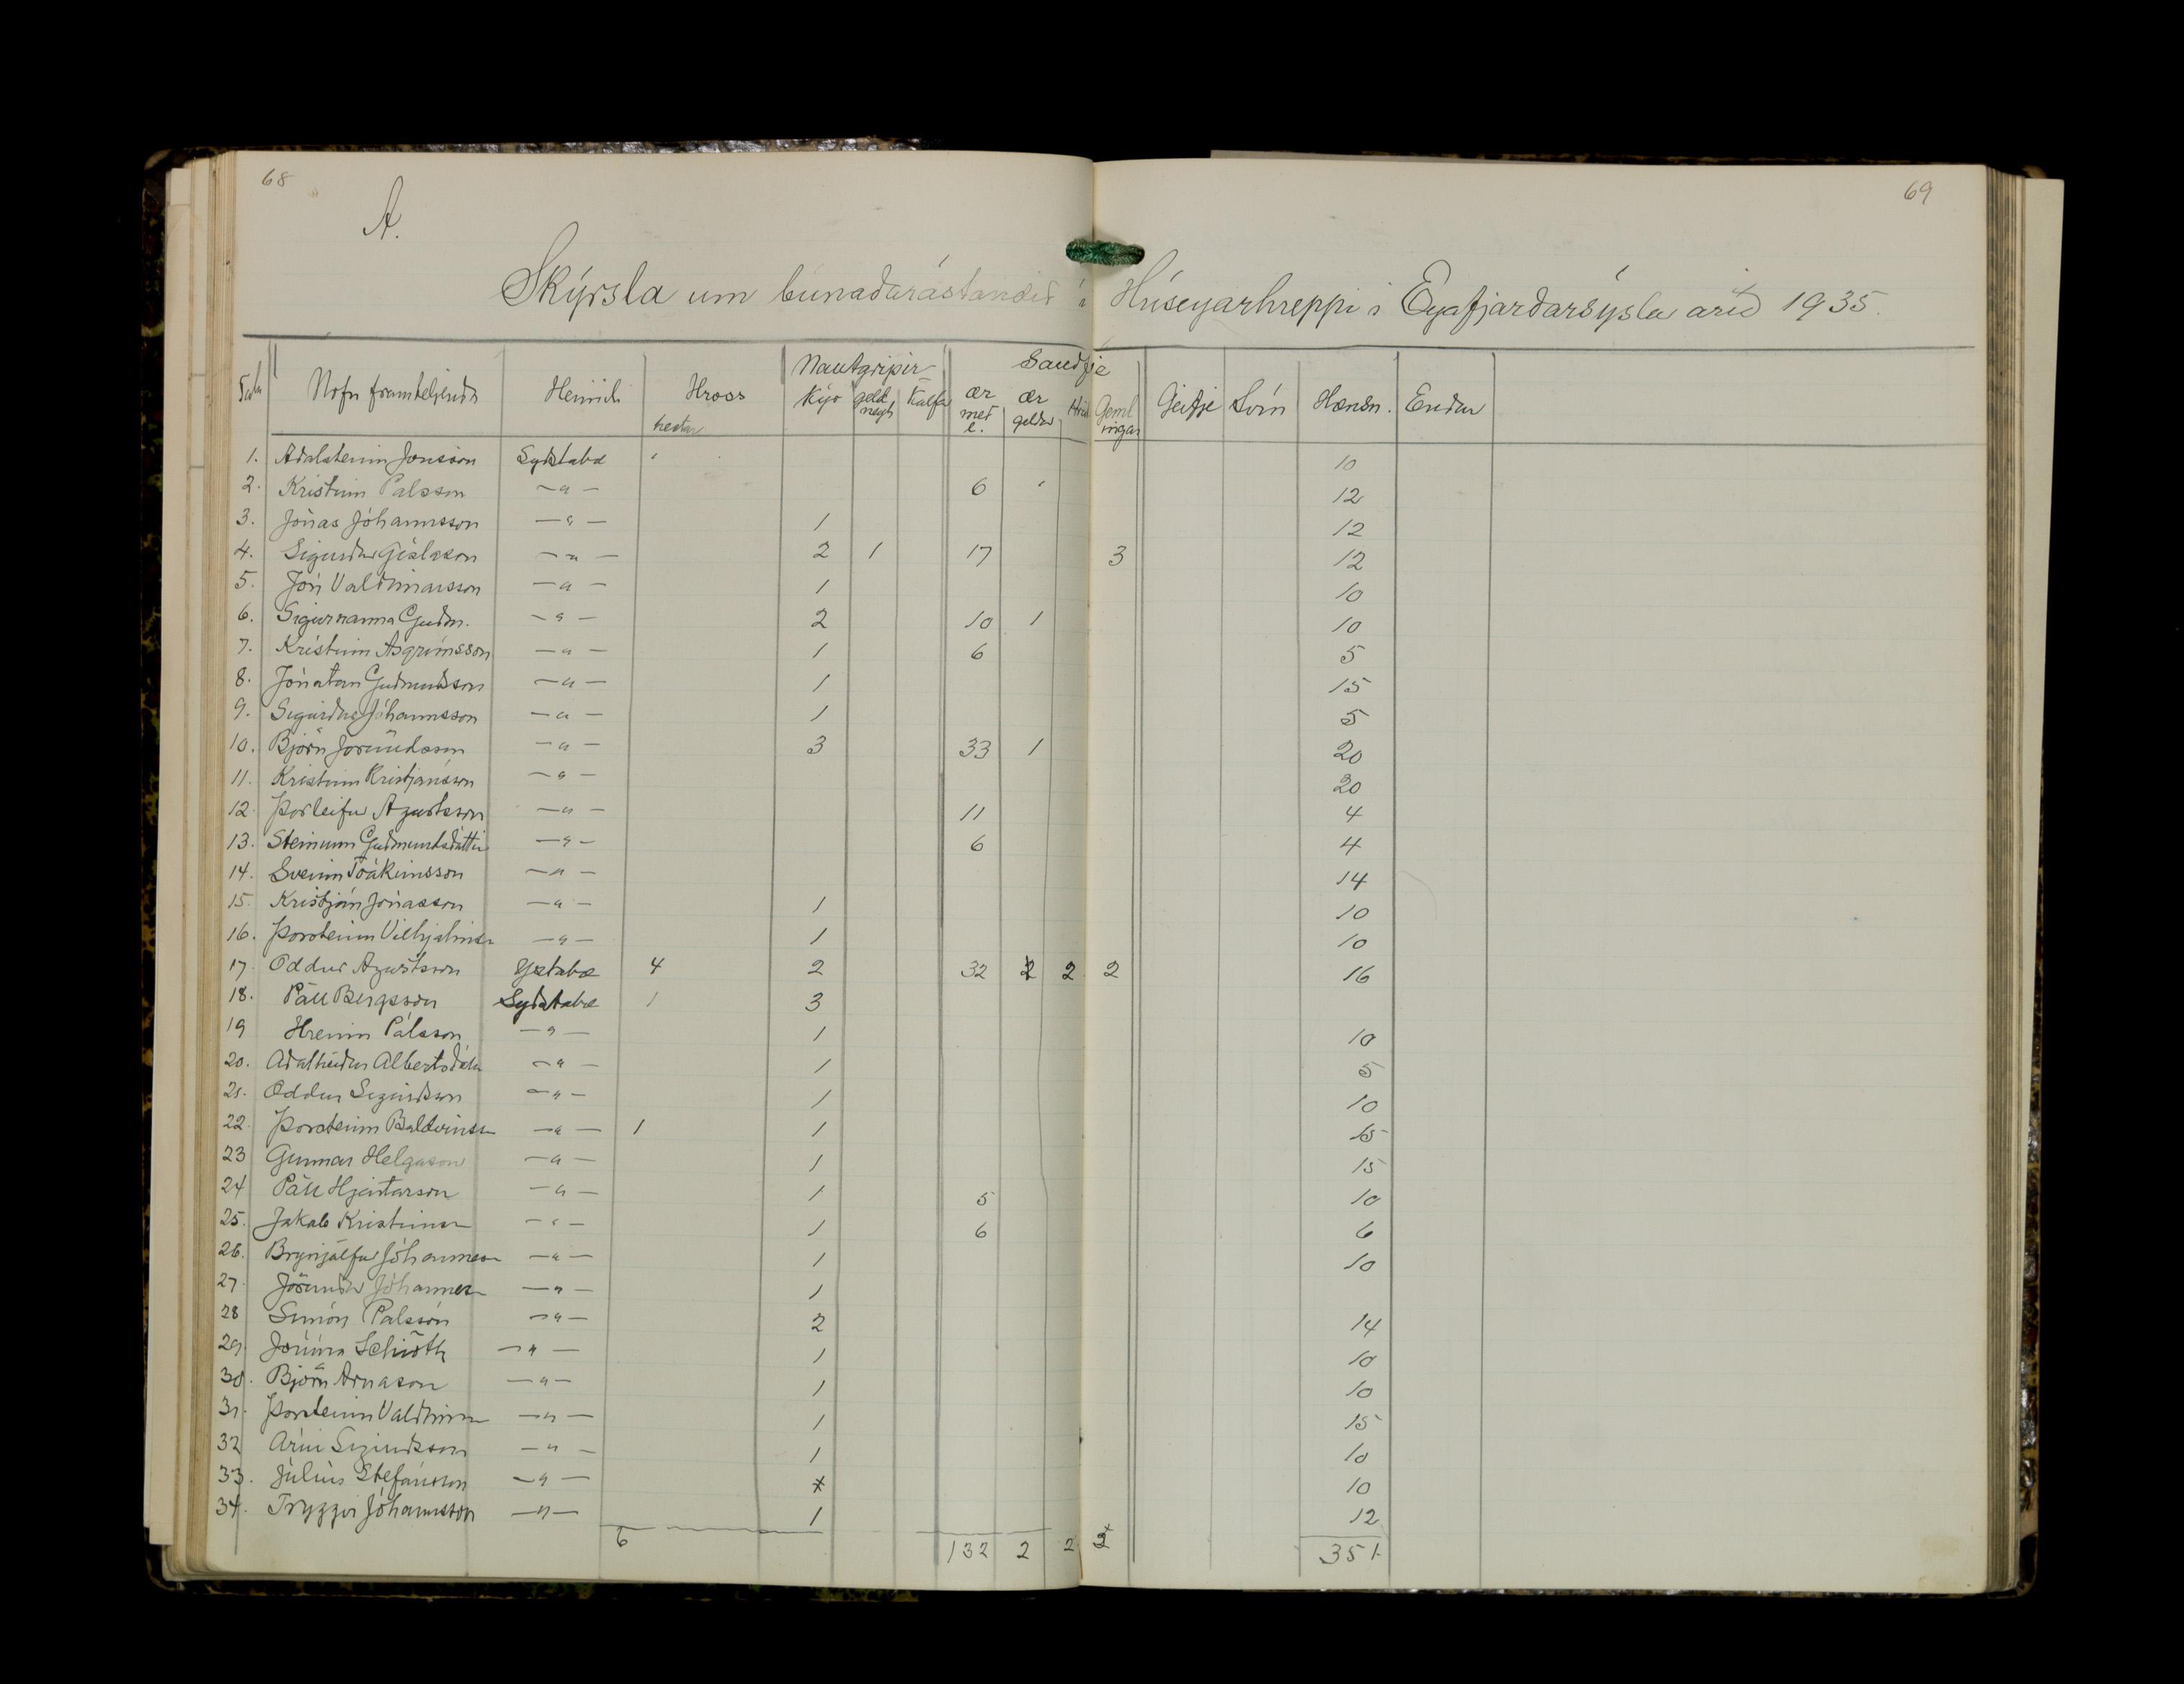 68
69
A.
Skýrsla um búnaðarástandið í Hríseyarhreppi í Eyafjarðarsýslu árið 1935.
Tala Nöfn framteljenda Heimili Hross hestar Nautgripir Kýr geld neyti Kálfar Sauðfje ær með l. ær geldar Hrút Gemlingar Geitfje Svín Hænsn. Endur
1. Aðalsteinn Jónsson Sydstabæ 10
2. Kristinn Pálsson —"— 6 12
3. Jónas Jóhannsson —"— 1 12
4. Sigurður Gíslason —"— 2 1 17 3 12
5. Jón Valdimarsson —"— 1 10
6. Sigurnanna Guðm. —"— 2 10 1 10
7. Kristinn Asgrímsson —"— 1 6 5
8. Jónatan Guðmundsson —"— 1 15
9. Sigurður Jóhannsson —"— 1 5
10. Björn Jörundsson —"— 3 33 1 20
11. Kristinn Kristjánsson —"— 20
12. Þorleifur Agústsson —"— 11 4
13. Steinunn Guðmundsdóttir —"— 6 4
14. Sveinn Jóakimsson —"— 14
15. Kristján Jónasson —"— 1 10
16. Þorsteinn Vilhjálmss —"— 1 10
17. Oddur Agústsson Ystabæ 4 2 32 2 2 2 16
18. Páll Bergsson Sydstabæ 1 3
19 Hreinn Pálsson —"— 1 10
20. Aðalheiður Albertsdóttir —"— 1 5
21. Oddur Sigurðsson —"— 1 10
22. Þorsteinn Baldvinss —"— 1 1 15
23 Gunnar Helgason —"— 1 15
24 Páll Hjartarson —"— 1 5 10
25. Jakob Kristinss —"— 1 6 6
26. Brynjólfur Jóhanness —"— 1 10
27. Jörundur Jóhanness —"— 1
28 Símon Pálsson —"— 2 14
29. Jónína Schiöth —"— 1 10
30. Björn Arnason —"— 1 10
31. Þorsteinn Valdimarss —"— 1 15
32 Arni Sigurdsson —"— 1 10
33. Júlíus Stefánsson —"— 10
34. Tryggvi Jóhannsson —"— 1 12
6 132 2 2 351